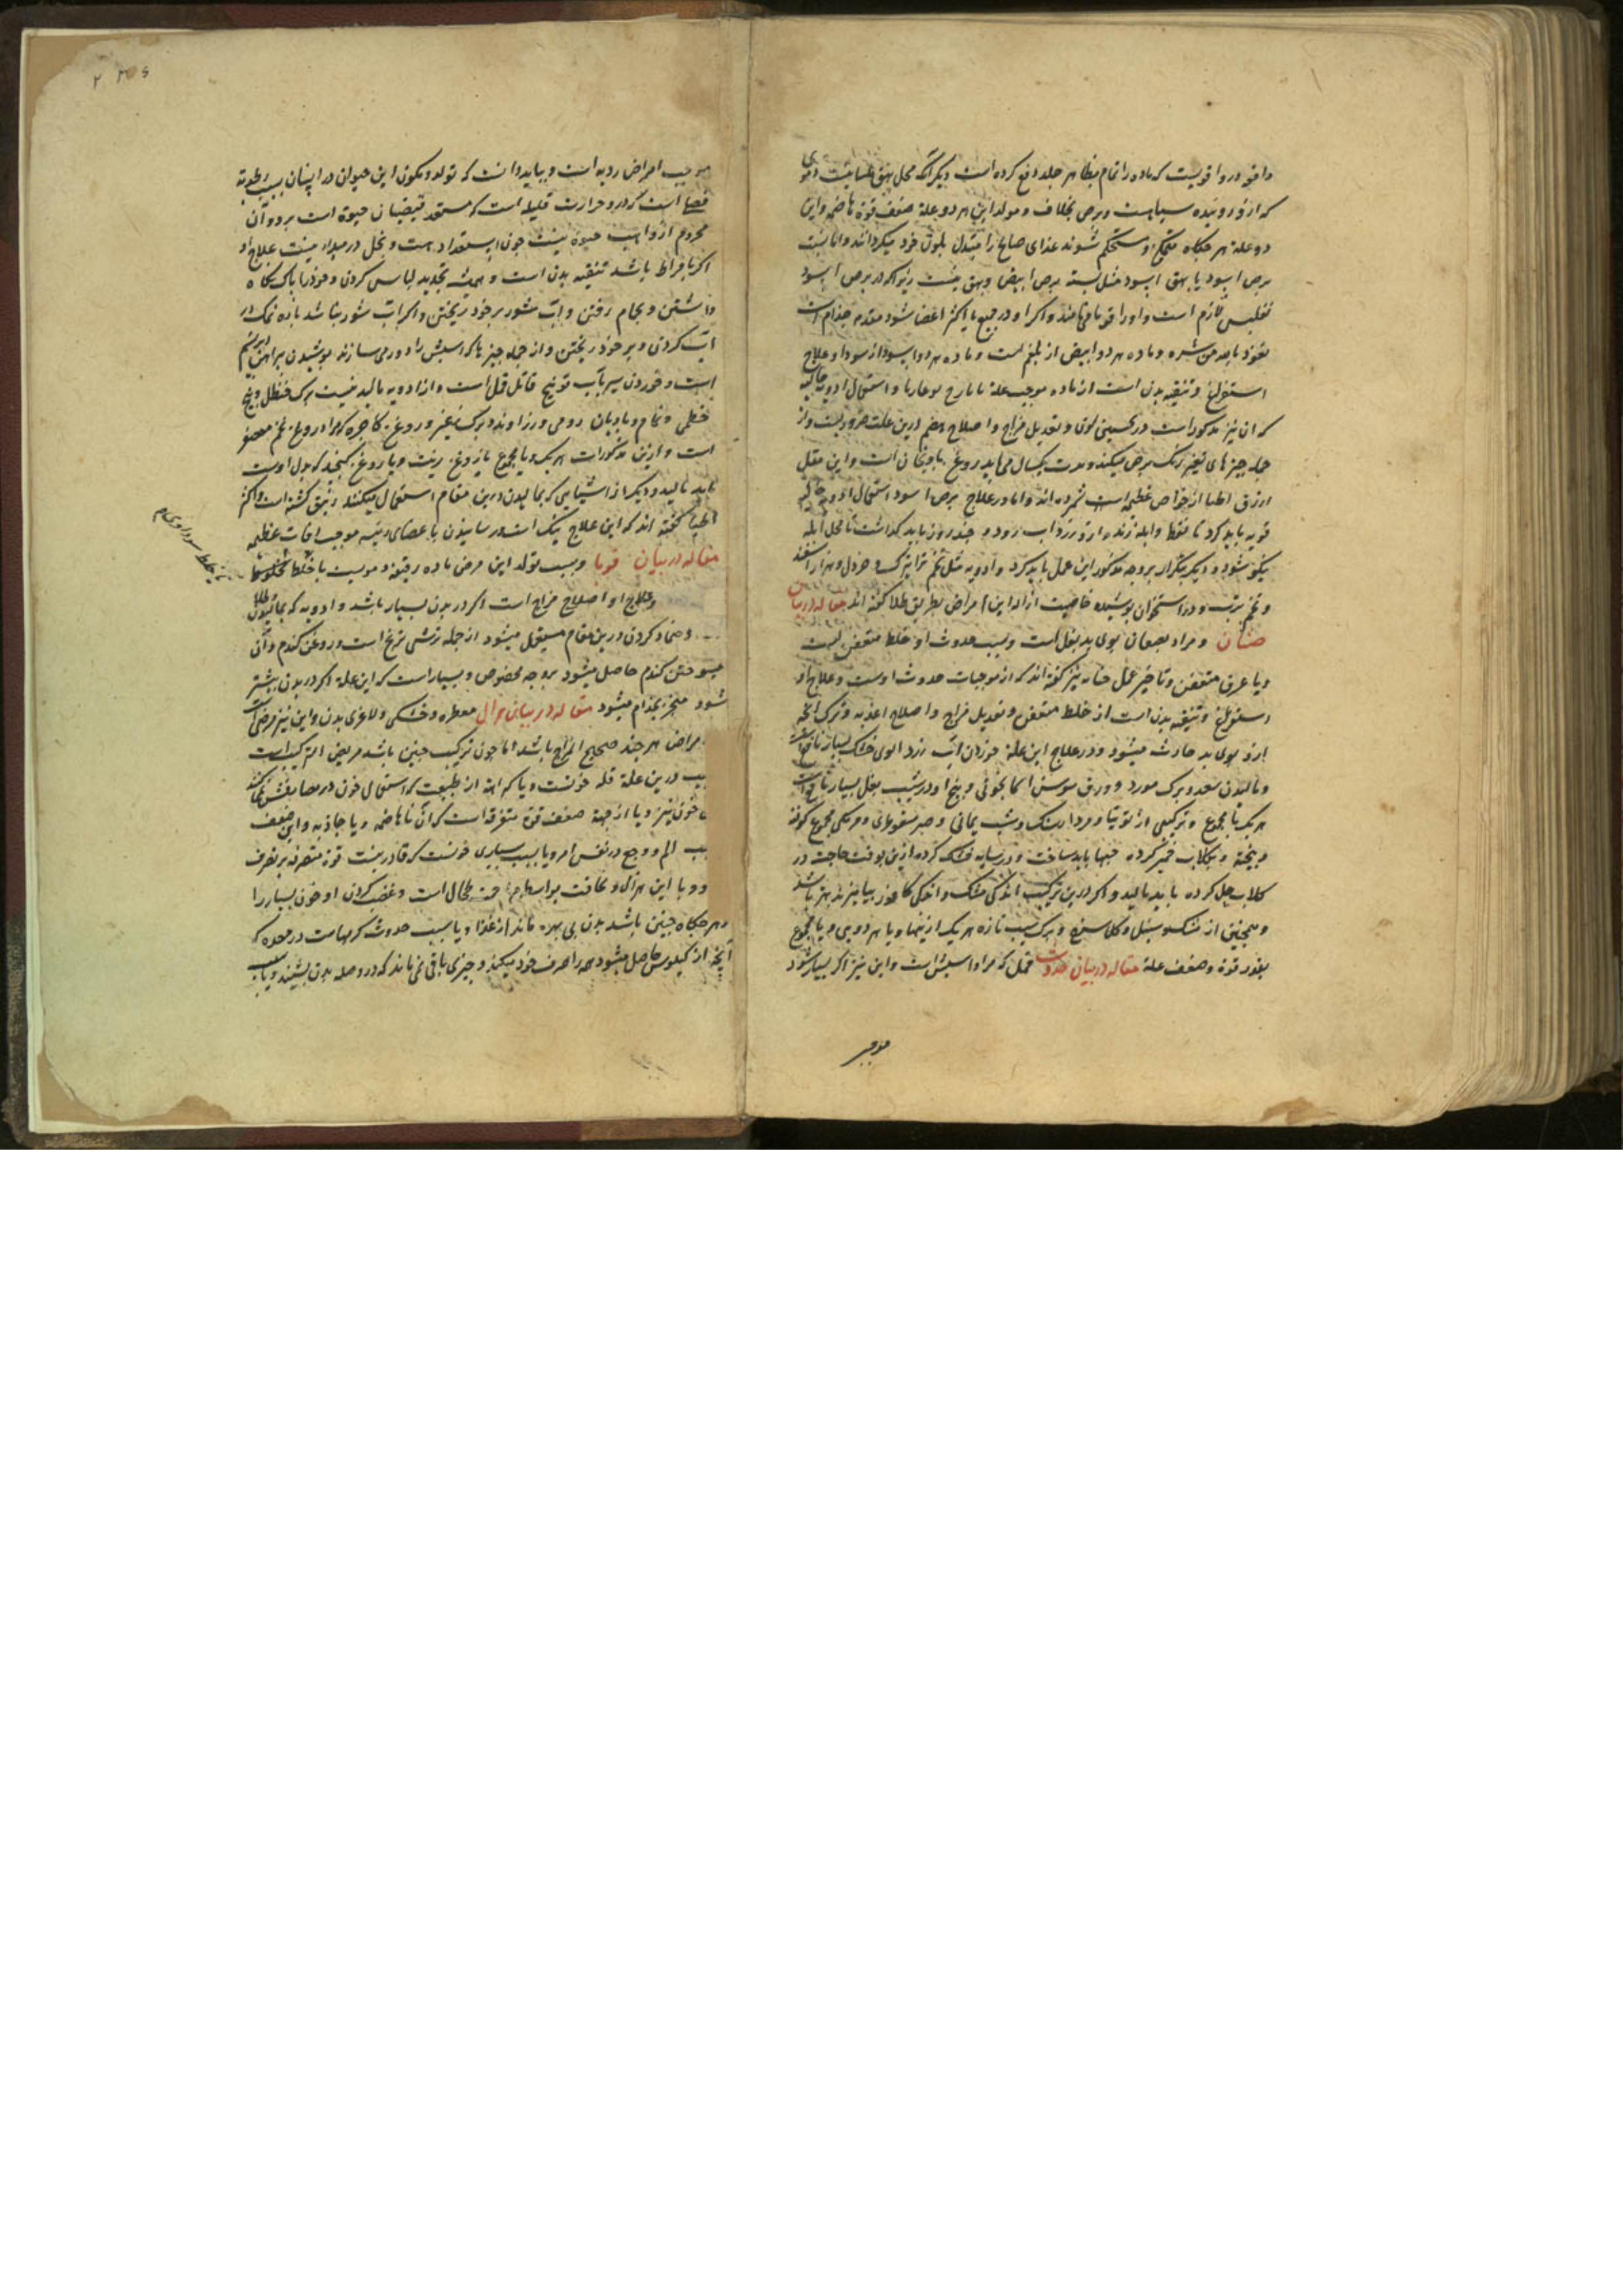 دافعه درو اقویست که ماده را تمام بظاهر جلد دفع کرده است دیگر آنکه محل بهق
که ازو روینده سیاهست و برص بخلاف و مولد این هر دو علة ضعف قوة هاضمه و این
دو علة هر چکاه متمکن و مستحکم شوند غذای صالح را متبدل بلون خود میگردانند و اما نسبت
برص اسود با بهق اسود مثل نسبة برص ابیض و بهق نیست زیرا که در برص اسود
تفلیس لازم است و او را قوبا می نامند و اگر او در جمیع یا اکثر اعضا شود مقدمه جذام است
نعوذ بالله من شره و ماده هر دو ابیض از بلغم است و ماده هر دو اسود از سودا و علاج
استفراغ و تنقیه بدن است از ماده موجب علة با یارج لوغاریا و استعمال ادویه جالیه
که آن نیز مذکور است در تحسین لون و تعدیل مزاج و اصلاح هضم درین علت ضروریست و از
جمله چیزهای که تغیر رنگ برص میکند و مدت یکسال می ماند روغن بادنجان است و این مقل
ازرق اطبا از خواص عظیمه است شمرده اند و اما در علاج برص اسود استعمال ادویه جالیه
قویه باید کرد تا نفط و ابله زند و ازو زرداب رود و چند روز باید گذاشت تا محل ابله
نیکو شود و دیگر بتکرار بروجه مذکور این عمل باید کرد و ادویه مثل تخم ترابزک و خردل و هزار اسفند
و تخم ترب و استخوان پوسیده خاصیت ازاله این امراض بطریق طلا گفته اند مقاله در بیان
صنان و مراد بصنان بوی بد بغل است و سبب حدوث او خلط متعفن است
و یا عرق متعفن و تاخیر غسل جنابه نیز گفته اند که از موجبات حدوث اوست و علاج او
استفراغ و تنقیه بدن است از خلط متعفن و تعدیل مزاج و اصلاح اغذیه و ترک آنچه
ازو بوی بد حادث میشود و در علاج این علة خوردن آب زرد آلوی خشک بسیار نافع است
و مالیدن سعد و برگ مورد و ورق سوسن آسمانجونی و بیخ او در شیب بغل بسیار نافع است
هر یک یا مجموع و ترکیبی از توتیا و مرداسنگ و شب یمانی و صبر سقوطری و مرمکی مجموع کوفته
و بیخته و بگلاب خمیر کرده حبها باید ساخت و در سایه خشک کرده ازین بوقت حاجت در
گلاب حل کرده باید مالید و اگر درین ترکیب اندکی مشک و اندکی کافور بیامیزند بهتر باشد
و همچنین از مشک و سنبل و گل سرخ و برگ سیب تازه هر یک ازینها و یا هر دویی و یا مجموع
بقدر قوة و ضعف علة مقاله در بیان حدوث قمل که مراد اسپش است و این نیز اگر بسیار شود
موجب
موجب امراض ردیه است و بباید دانست که تولد و تکون این حیوان در انسان بسبب رطوبة
فضلیا است که درو حرارت قلیله است که مستعد فیضان حیوة است برو و آن
محروم از واهب حیوة نیست چون استعداد هست و بخل در مبدا نیست علاج او
اگر بافراط باشد تنقیه بدن است و همیشه تجدید لباس کردن و خود را پاک نگاه
داشتن و بحمام رفتن و آب شور بر خود ریختن و اگر آب شور نباشد باید نمک در
آب کردن و بر خود ریختن و از جمله چیزها که اسپش را دور می سازند پوشیدن پیراهن ابریشم
است و خوردن سیر بآب فوتنج قاتل قمل است و از ادویه مالیدنیست برگ حنظل و بیخ
خطمی و نمام و بادیان رومی و زراوند و برگ و روغن کاجیره که مراد روغن تخم معصفر
است و ازین مذکورات هر یک و یا مجموع با روغن زیت و یا روغن کنجد که بدل اوست
باید مالید و دیگر از اشیایی که بمالیدن درین مقام استعمال میکنند زیبق کشته است و اکثر
اطبا گفته اند که این علاج نیک است و رسانیدن باعضای رئیسه موجب آفات عظیمه
مقاله در بیان قوبا و سبب تولد این مرض ماده رقیقه دمویست با خلط مخلوط
بخلط سوداوی
و علاج او اصلاح مزاج است اگر در بدن بسیار باشد و ادویه که بمالیدن طلا
و ضماد کردن درین مقام مستعمل میشود از جمله ترشی ترنج است و روغن گندم و آن
بسوختن گندم حاصل میشود بروجه مخصوص و بسیار است که این علة اگر در بدن بیشتر
شود منجر بجذام میشود مقاله در بیان هزال مفرطه و خشکی و لاغری بدن و این نیز مرضی است
امراض هر چند صحیح المزاج باشد اما چون ترکیب چنین باشد مریض الترکیب است
سبب درین علة قلة خونست و یا کراهة از طبیعت که استعمال خون در مصارفش نمی کند
خون نیز و یا از جهة ضعف قوة متفرقه است که آن یا هاضمه و یا جاذبه و این ضعف
سبب الم و وجع در نفس امر و یا بسبب بسیاری خونست که قادر نیست قوة متصرفه بر تصرف
و یا این هزال و نحافت بواسطه طحال است و غصب کردن او خون بسیار را
و هر چکاه چنین باشد بدن بی بهره ماند از غذا و یا سبب حدوث کرمهاست در معده که
آنچه از کیلوس حاصل میشود همه را صرف خود میکنند و چیزی باقی نمی ماند که در وصله بدن بشیند و یا بسبب